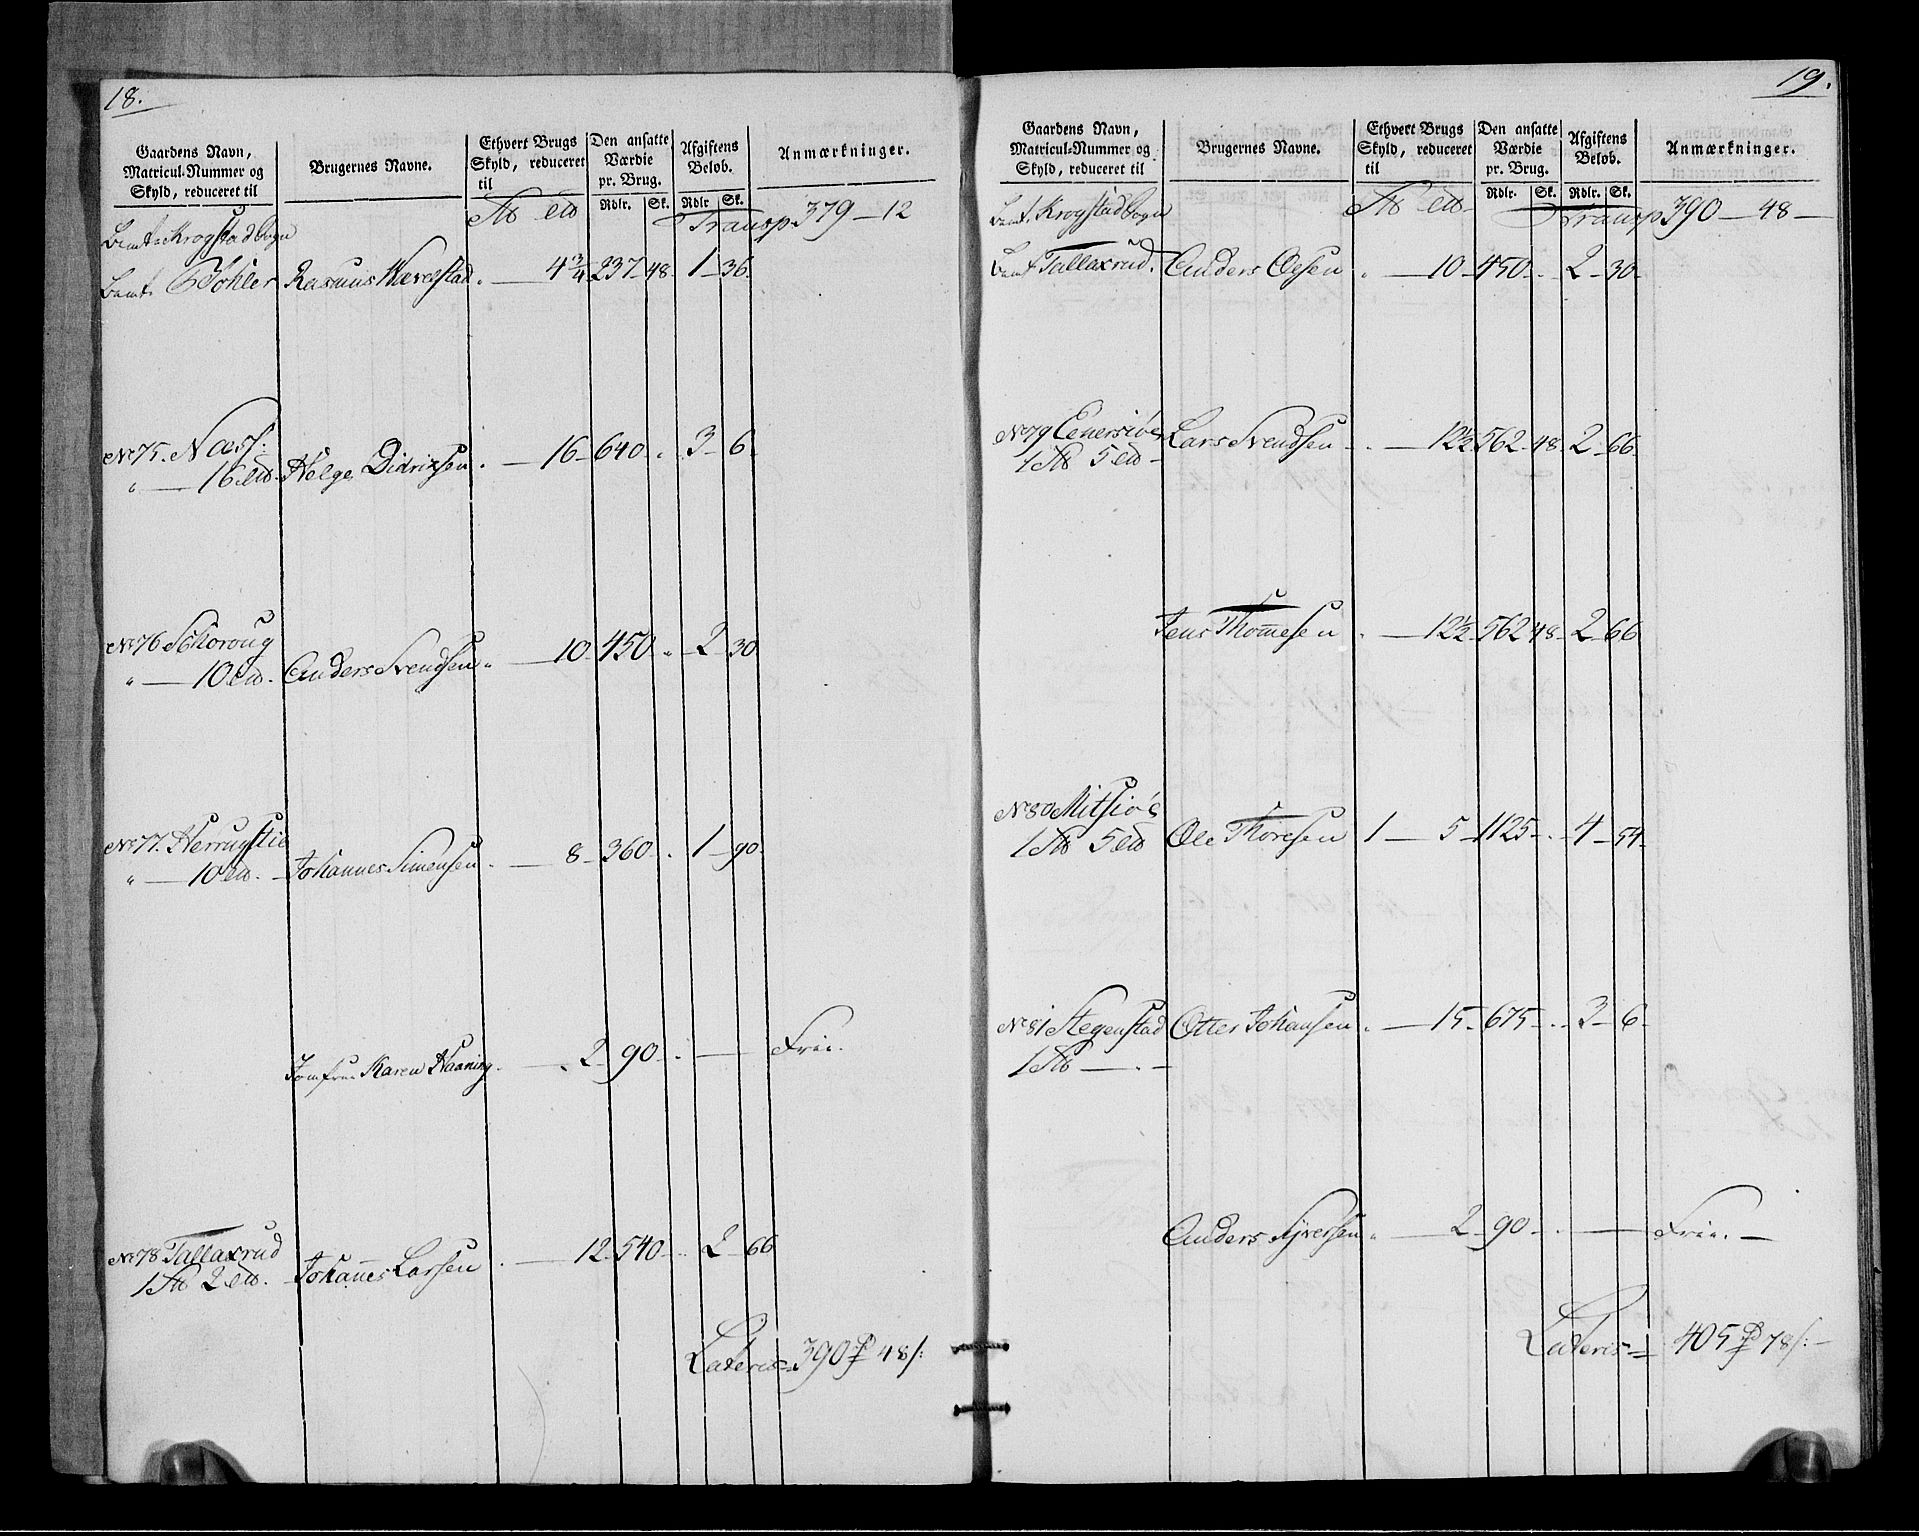 18.
Gaardens Navn, Matricul-Nummer og Skyld, reduceret til
Brugernes Navne.
Ethvert Brugs Skyld, reduceret til
Den ansatte Værdie pr. Brug.
Afgiftens Beløb.
Anmærkninger.
Rdlr. Sk. Rdlr Sk.
Bemt: Krogstad Sogn Transp 379 — 12
Bemt. Bøhler Rasmus Wævelstad . — 4 3/4 237 - 48 . 1 - 36
No 75. Næss: Helge Didrixsen . — 16 - 640 - . 3 - 6
" — 16
No 76 Schoroug Anders Svendsen " — 10 - 450 . 2 30
" — 10
No 77. Herrugstie Johannes Simensen . — 8 - 360 . 1 - 90
" — 10
Jomfrue Karen Haaning . — . 2 - 90 . — Frie.
No 78 Tallaxrud Johannes Larsen . — 12 - 540 - . 2 - 66
1 2
Lateris = 390 48/:
19.
Gaardens Navn, Matricul-Nummer og Skyld, reduceret til
Brugernes Navne.
Ethvert Brugs Skyld, reduceret til
Den ansatte Værdie pr. Brug.
Afgiftens Beløb.
Anmærkninger.
Rdlr. Sk. Rdlr. Sk.
Bemt. Krogstad Sogn Transp 390 — 48 —
Bemt Tallaxrud. Anders Olesen . — 10 - 450 - . 2 - 30
No 79 Eenersiøe Lars Svendsen . — 12 1/2 562 - 48 - 2 - 66
1 5 —
Jens Thommesen . — 12 1/2 562 48 - 2 - 66
No 80 Mitsiøe Ole Thoresen 1 — 5 - 1125 - . 4 - 54
1 5
No 81 Stegenstad Otter Johansen . — 15 - 675 - . 3 - 6
1 — . —
Anders Syversen " — 2 - 90 - . — Frie. —
Lateris = 405 78/: —